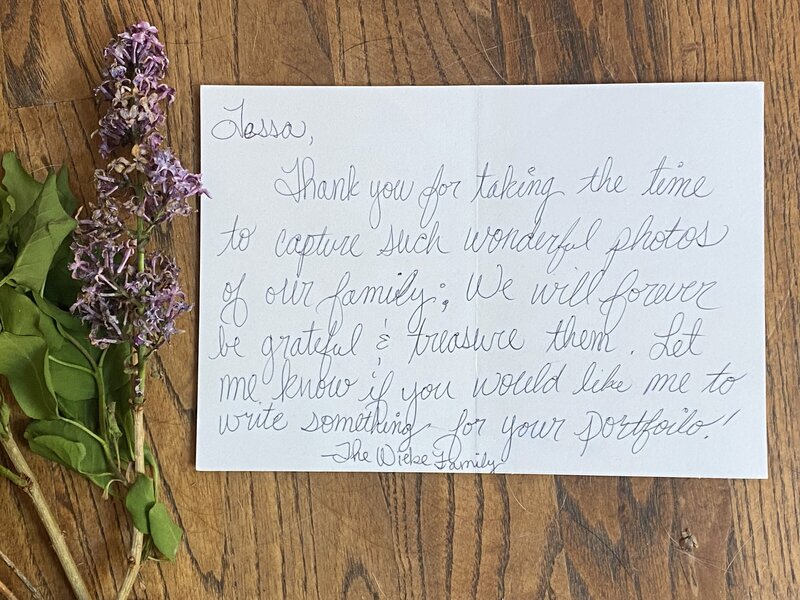 Tessa,
Thank you for taking the time
to capture such wonderful photos
of our family; We will forever
be grateful & treasure them. Let
me know if you would like me to
write something for your portfoilo!
-The Wiebe Family